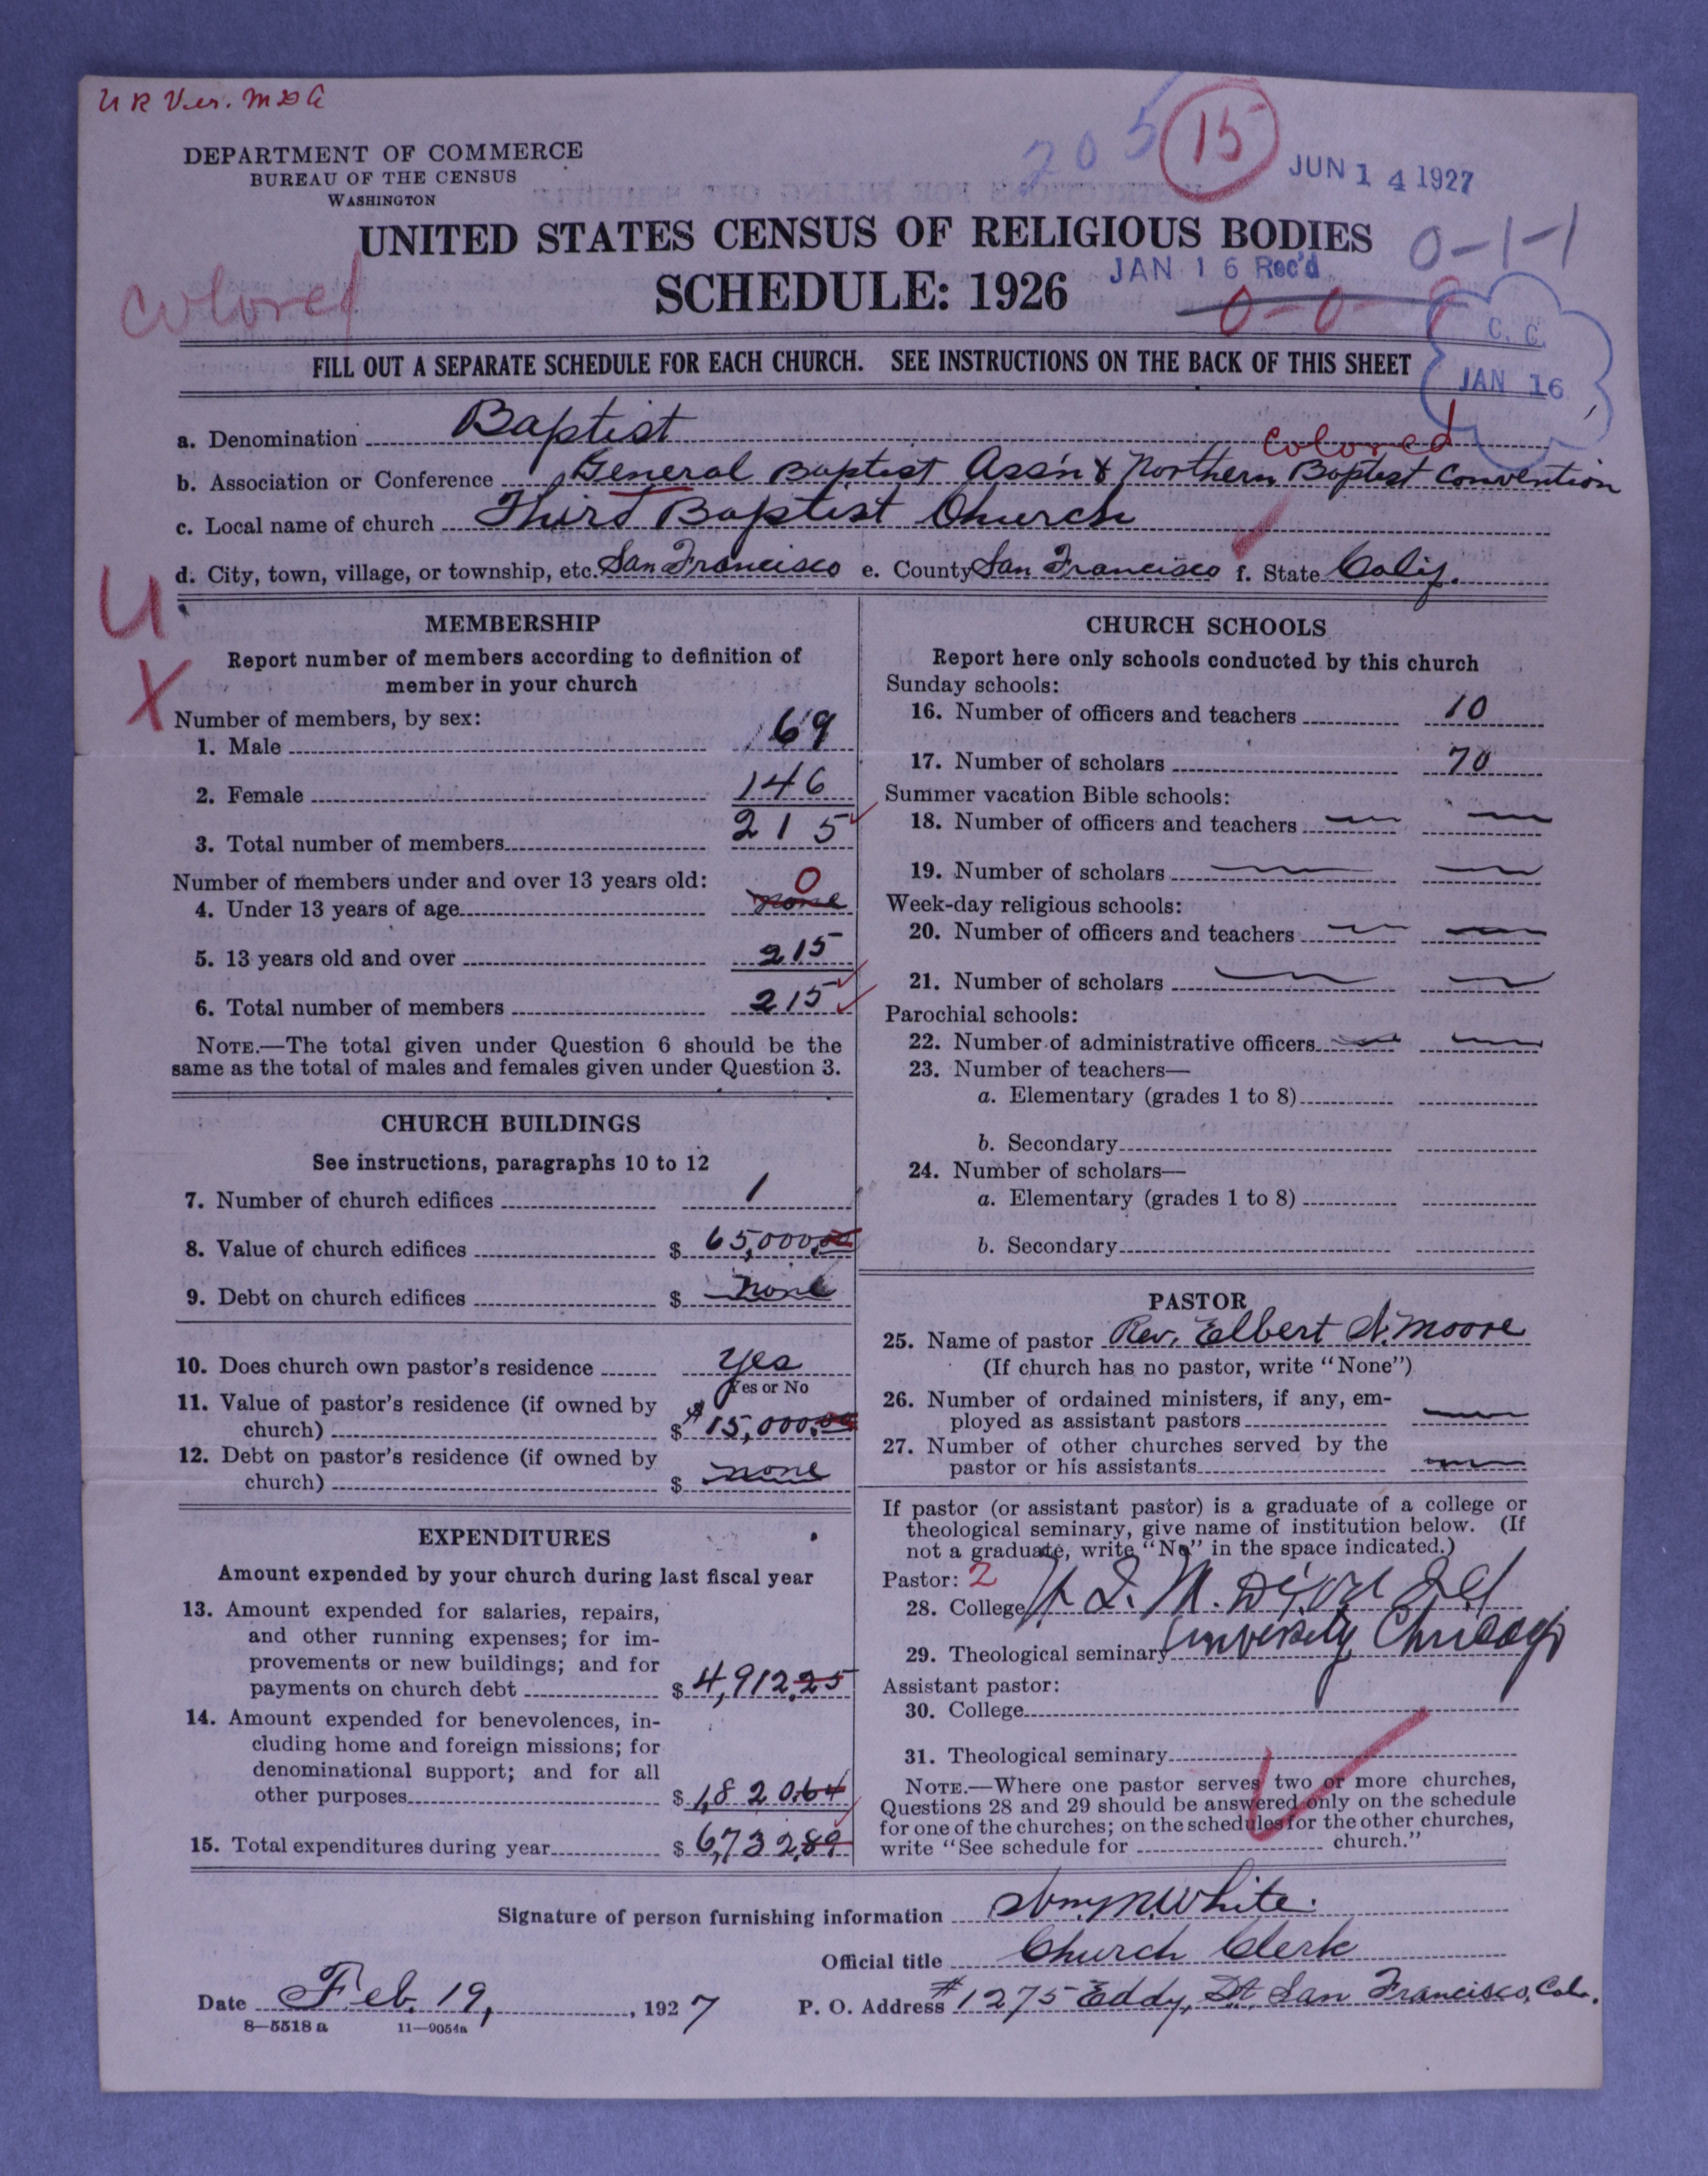 U R Ver. M D A
205
15
JUN 14 1927
DEPARTMENT OF COMMERCE
BUREAU OF THE CENSUS
WASHINGTON
UNITED STATES CENSUS OF RELIGIOUS BODIES
0-1-1
JAN 16 Rec'd
SCHEDULE: 1926
colored
0-0-
C. C.
JAN 16
FILL OUT A SEPARATE SCHEDULE FOR EACH CHURCH. SEE INSTRUCTIONS ON THE BACK OF THIS SHEET
a. Denomination Baptist
colored
b. Association or Conference General Baptist Ass'n & Northern Baptist Convention
c. Local name of church Third Baptist Church
d. City, town, village, or township, etc. San Francisco e. County San Francisco f. State Calif.
U
X
MEMBERSHIP
Report number of members according to definition of
member in your church
Number of members, by sex:
1. Male 69
2. Female 146
3. Total number of members 215
Number of members under and over 13 years old:
0
4. Under 13 years of age none
5. 13 years old and over 215
6. Total number of members 215
NOTE.—The total given under Question 6 should be the
same as the total of males and females given under Question 3.
CHURCH BUILDINGS
See instructions, paragraphs 10 to 12
7. Number of church edifices 1
8. Value of church edifices $ 65,000.00
9. Debt on church edifices $ none
10. Does church own pastor's residence yes
Yes or No
11. Value of pastor's residence (if owned by
church) $ $15,000.00
12. Debt on pastor's residence (if owned by
church) $ none
EXPENDITURES
Amount expended by your church during last fiscal year
13. Amount expended for salaries, repairs,
and other running expenses; for im-
provements or new buildings; and for
payments on church debt $ 4,912.25
14. Amount expended for benevolences, in-
cluding home and foreign missions; for
denominational support; and for all
other purposes $ 1,820.64
15. Total expenditures during year $ 6,732.89
CHURCH SCHOOLS
Report here only schools conducted by this church
Sunday schools:
16. Number of officers and teachers 10
17. Number of scholars 70
Summer vacation Bible schools:
18. Number of officers and teachers
19. Number of scholars
Week-day religious schools:
20. Number of officers and teachers
21. Number of scholars
Parochial schools:
22. Number of administrative officers
23. Number of teachers—
a. Elementary (grades 1 to 8)
b. Secondary
24. Number of scholars—
a. Elementary (grades 1 to 8)
b. Secondary
PASTOR
25. Name of pastor Rev. Elbert A. Moore
(If church has no pastor, write "None")
26. Number of ordained ministers, if any, em-
ployed as assistant pastors
27. Number of other churches served by the
pastor or his assistants
If pastor (or assistant pastor) is a graduate of a college or
theological seminary, give name of institution below. (If
not a graduate, write "No" in the space indicated.)
Pastor: 2
28. College
29. Theological seminary University Chicago
Assistant pastor:
30. College
31. Theological seminary
NOTE.—Where one pastor serves two or more churches,
Questions 28 and 29 should be answered only on the schedule
for one of the churches; on the schedules for the other churches,
write "See schedule for church."
Signature of person furnishing information Wm. N. White.
Official title Church Clerk
Date Feb. 19, , 1927 P. O. Address #1275 Eddy, St. San Francisco, Cal.
8—5518 a 11—9054a